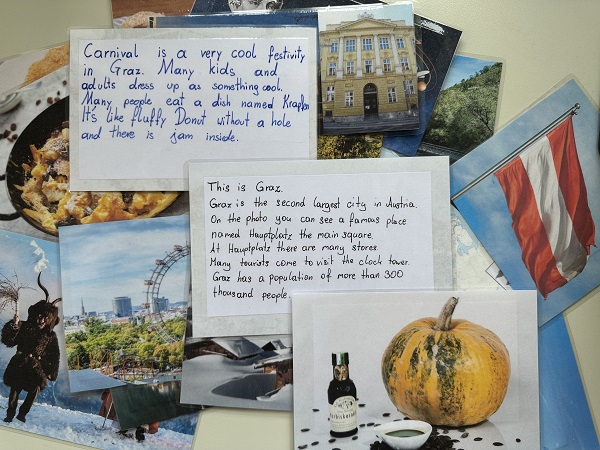 Carnival is a very cool festivity
in Graz. Many kids and
adults dress up as something cool.
Many people eat a dish named Krapfen
It's like fluffy Donot without a hole
and there is jam inside.
This is Graz.
Graz is the second largest city in Austria.
On the photo you can see a famous place
named Hauptplatz the main square.
At Hauptplatz there are many stores.
Many tourists come to visit the clock tower.
Graz has a population of more than 300
thousand people.